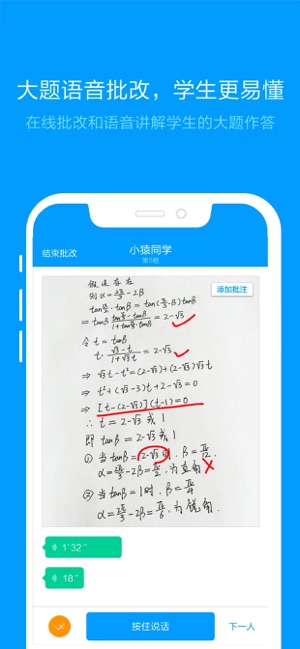 大题语音批改，学生更易懂
在线批改和语音讲解学生的大题作答
结束批改
小猿同学
第5题
添加批注
假设存在
则α=2π/3-2β
tan α/2·tanβ=tan(π/3-β)tanβ
=tanβ (tan π/3-tanβ)/(1+tan π/3·tanβ)=2-√3
令t=tanβ
t·(√3-t)/(1+√3t)=2-√3
⇒ √3t-t²=(2-√3)+(2-√3)√3t
⇒ t²+(√3-3)t+2-√3=0
⇒ [t-(2-√3)](t-1)=0
∴ t=2-√3或1
即 tanβ=2-√3或1
① 当tanβ=2-√3时，β=π/12.
α=2π/3-2β=π/2，为直角
② 当tanβ=1时，β=π/4
α=2π/3-2β=π/6，为锐角.
1'32"
18"
按住说话
下一人